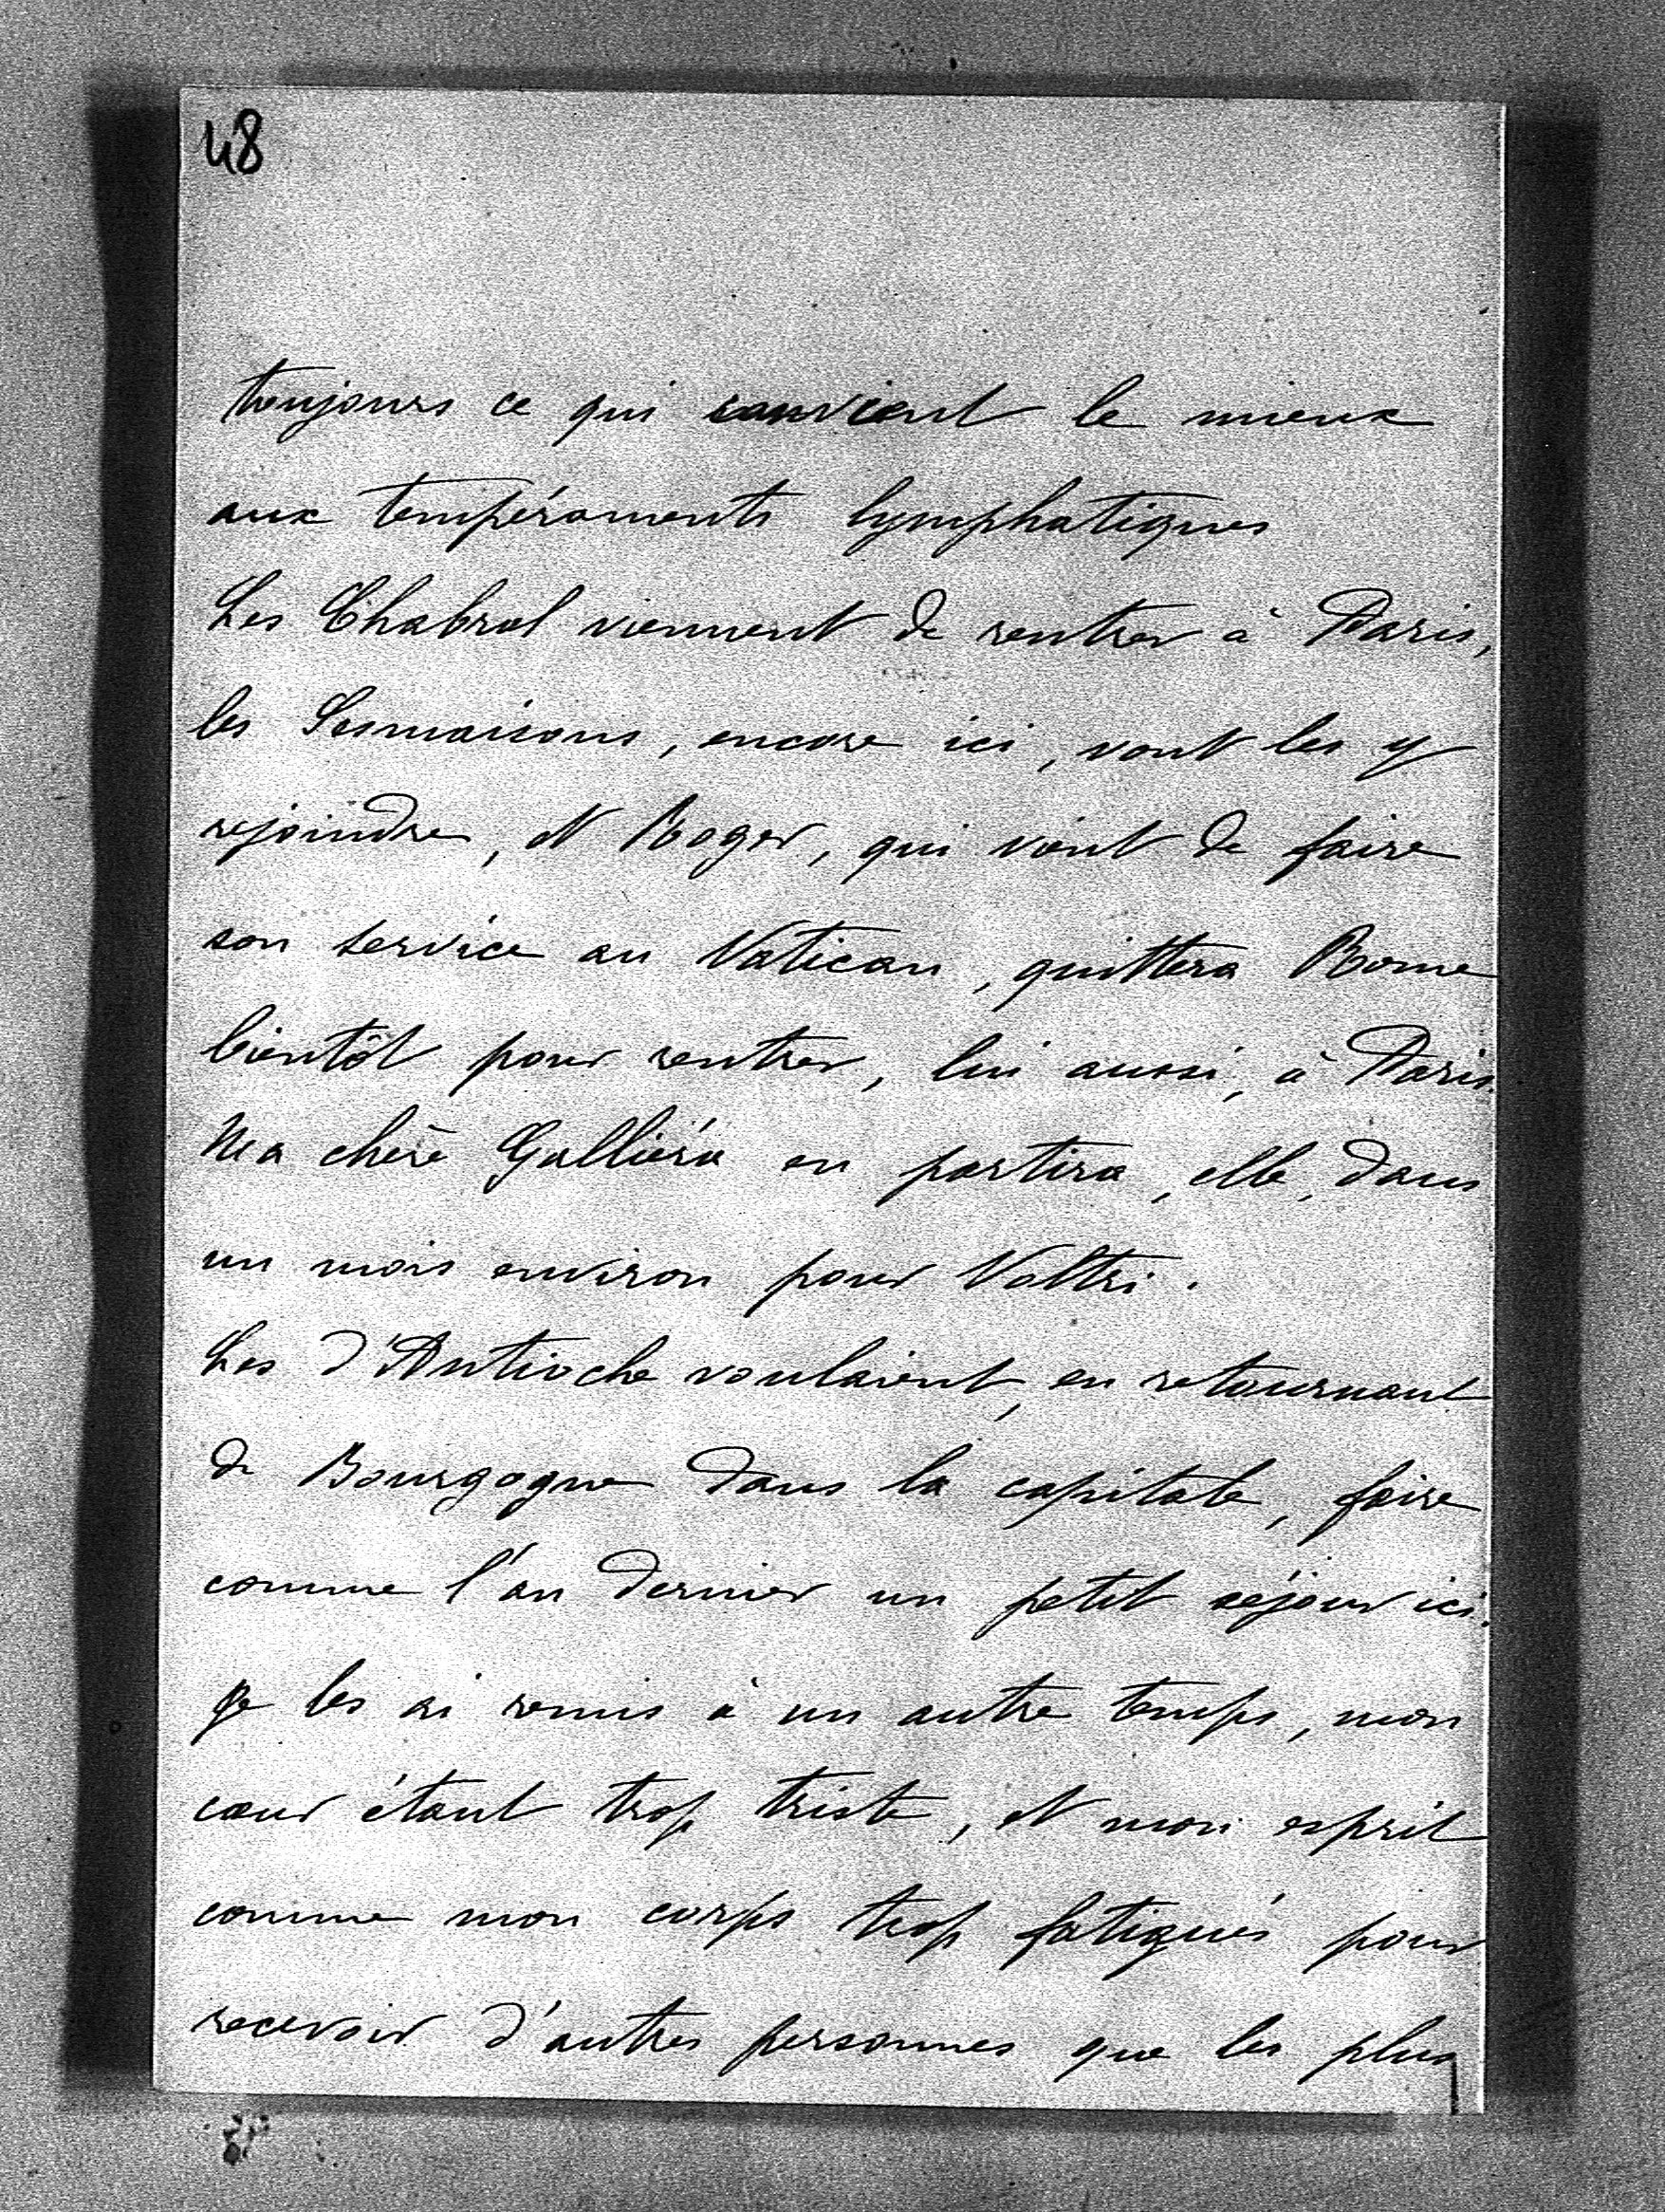 48
toujours ce qui convient le mieux
aux tempéraments lymphatiques
Les Chabrol viennent de rentrer à Paris,
les Sesmaisons, encore ici, vont les y
rejoindre, et Roger, qui vient de faire
son service au Vatican, quittera Rome
bientôt pour rentrer, lui aussi, à Paris.
Ma chère Galliéra en partira, elle, dans
un mois environ pour Voltri.
Les d'Antioche voulaient, en retournant
de Bourgogne dans la capitale, faire
comme l'an dernier un petit séjour ici.
Je les ai remis à un autre temps, mon
cœur étant trop triste, et mon esprit
comme mon corps trop fatigués pour
recevoir d'autres personnes que les plus